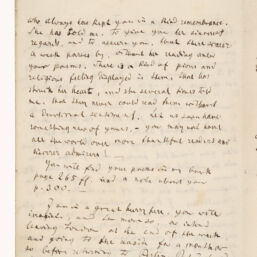 who always has kept you in a kind remembrance.
She has told me to give you her sincerest
regards, and to assure you, that there never
a week passes by, without her reading only
your poems; There is a kind of pious and
religious feeling displayed in them, that has
struck her heart, and she several times told
me, that they never could read them without
a Devotional sentiment. Let us soon have
something new of yours, - you may not have
all the world over more thankful readers and
admirers!
You will find your poems in my book
page 265 ff. and a note about you
p. 300.
I am in a great hurry here, you will
excuse, and
leaving at the end of the week
and going to the for a month or
so before returning to